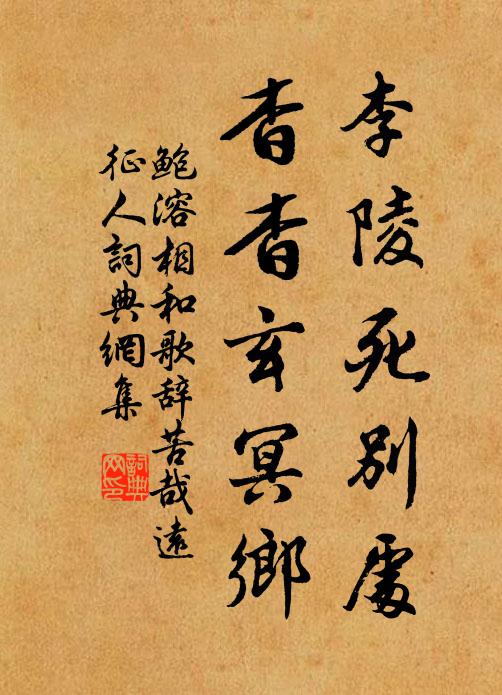 李陵死別處
杳杳玄冥鄉
鮑溶相和歌辞苦哉遠
征人詞典網集
詞典
网印